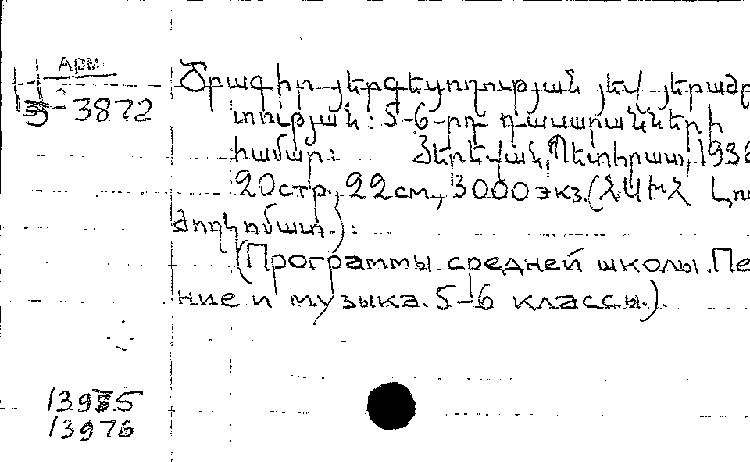 Арм.
3-3872
Ծրագիր յերգեցողության յեվ յերաժշ
տության: 5-6-րդ դասարանների
համար: Յերեվան, Պետհրատ, 1936
20стр., 22см., 3000экз. (ՀԱԽՀ Լու
ժողկոմատ.):
(Программы средней школы. Пе
ние и музыка. 5-6 классы.).
13975
13976